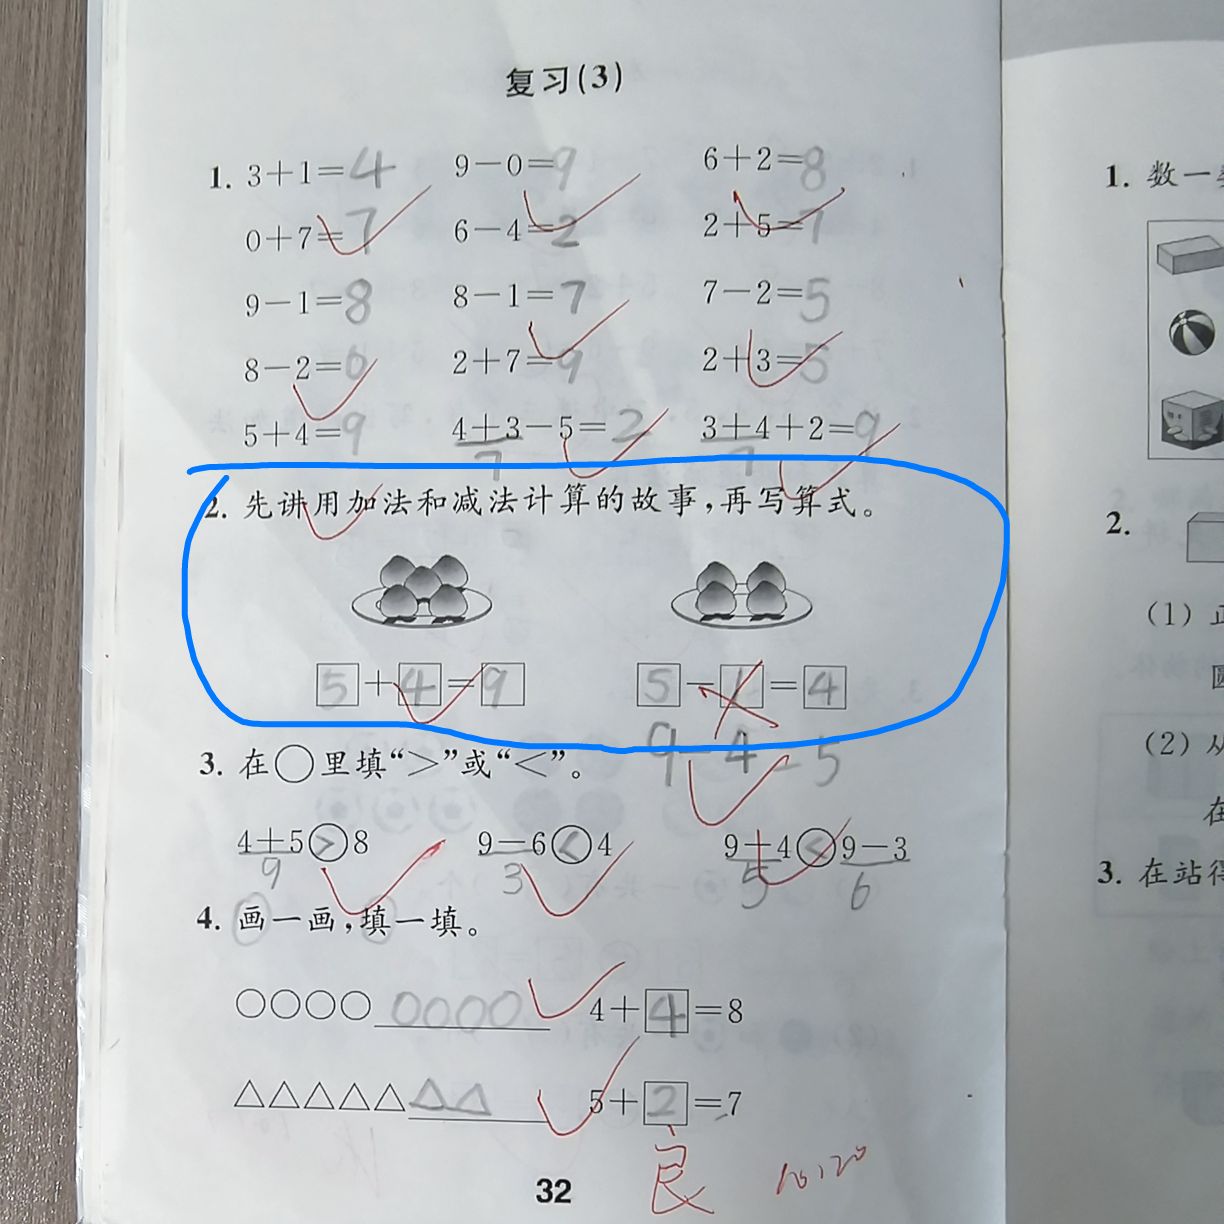 复习(3)
1. 3+1=4 9-0=9 6+2=8
0+7=7 6-4=2 2+5=7
9-1=8 8-1=7 7-2=5
8-2=6 2+7=9 2+3=5
5+4=9 4+3-5=2 3+4+2=9
7 7
2. 先讲用加法和减法计算的故事,再写算式。
5+4=9 5-1=4
9-4=5
3. 在○里填“>”或“<”。
4+5>8 9-6<4 9-4<9-3
9 3 5 6
4. 画一画,填一填。
○○○○ 0000 4+4=8
△△△△△△△ 5+2=7
良 10,20
32
1. 数一
2.
(1) 正
圆
(2) 从
在
3. 在站得